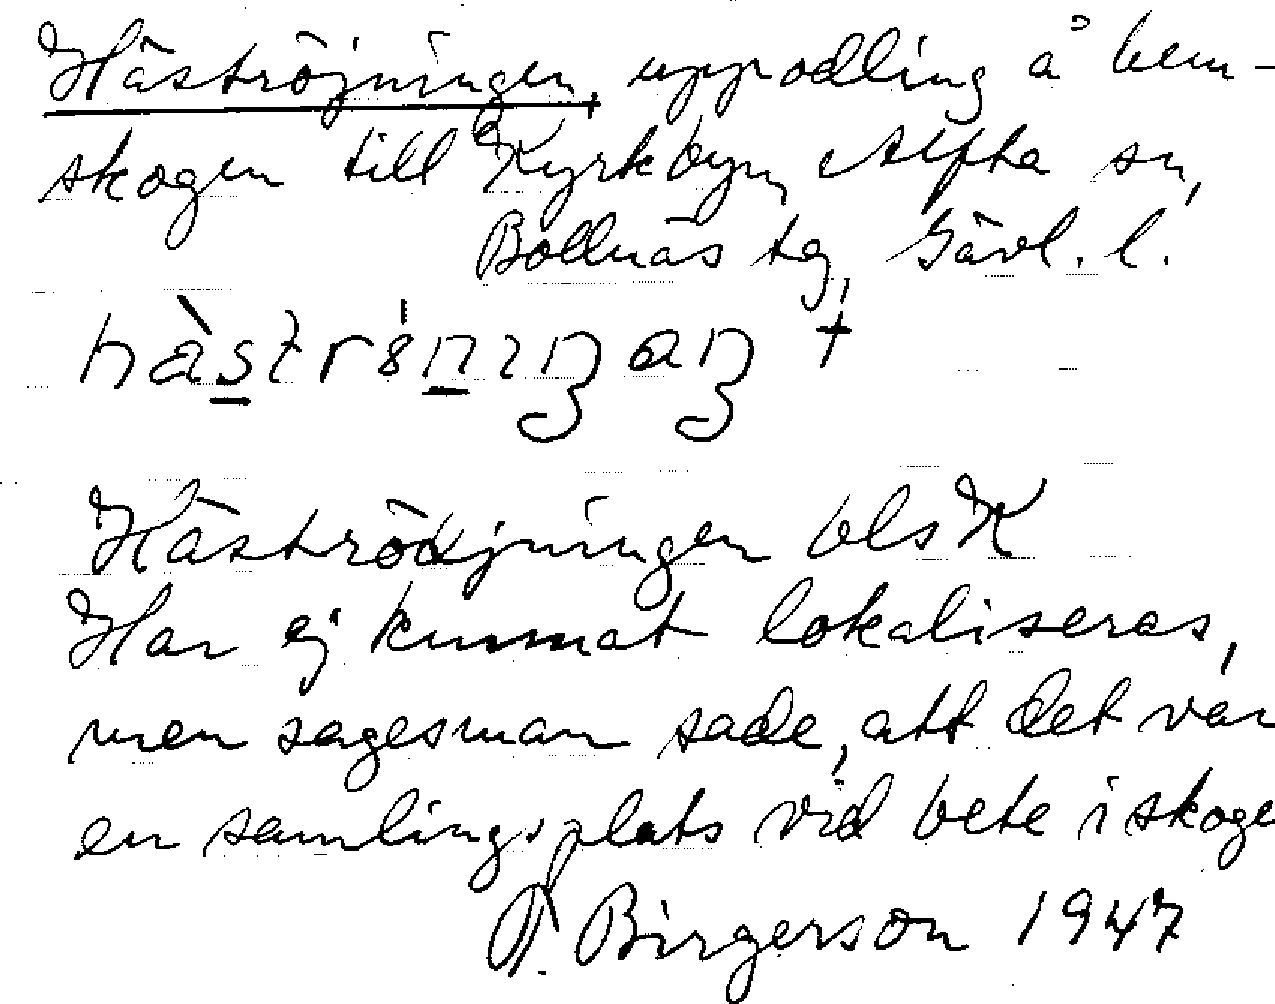 Häströjningen, uppodling å hem-
skogen till Kyrkbyn, Alfta sn,
Bollnäs tg, Gävl. l.
Häströdjningen bls K
Har ej kunnat lokaliseras,
men sagesman sade, att det var
en samlingsplats vid bete i skoge
P. Birgerson 1947